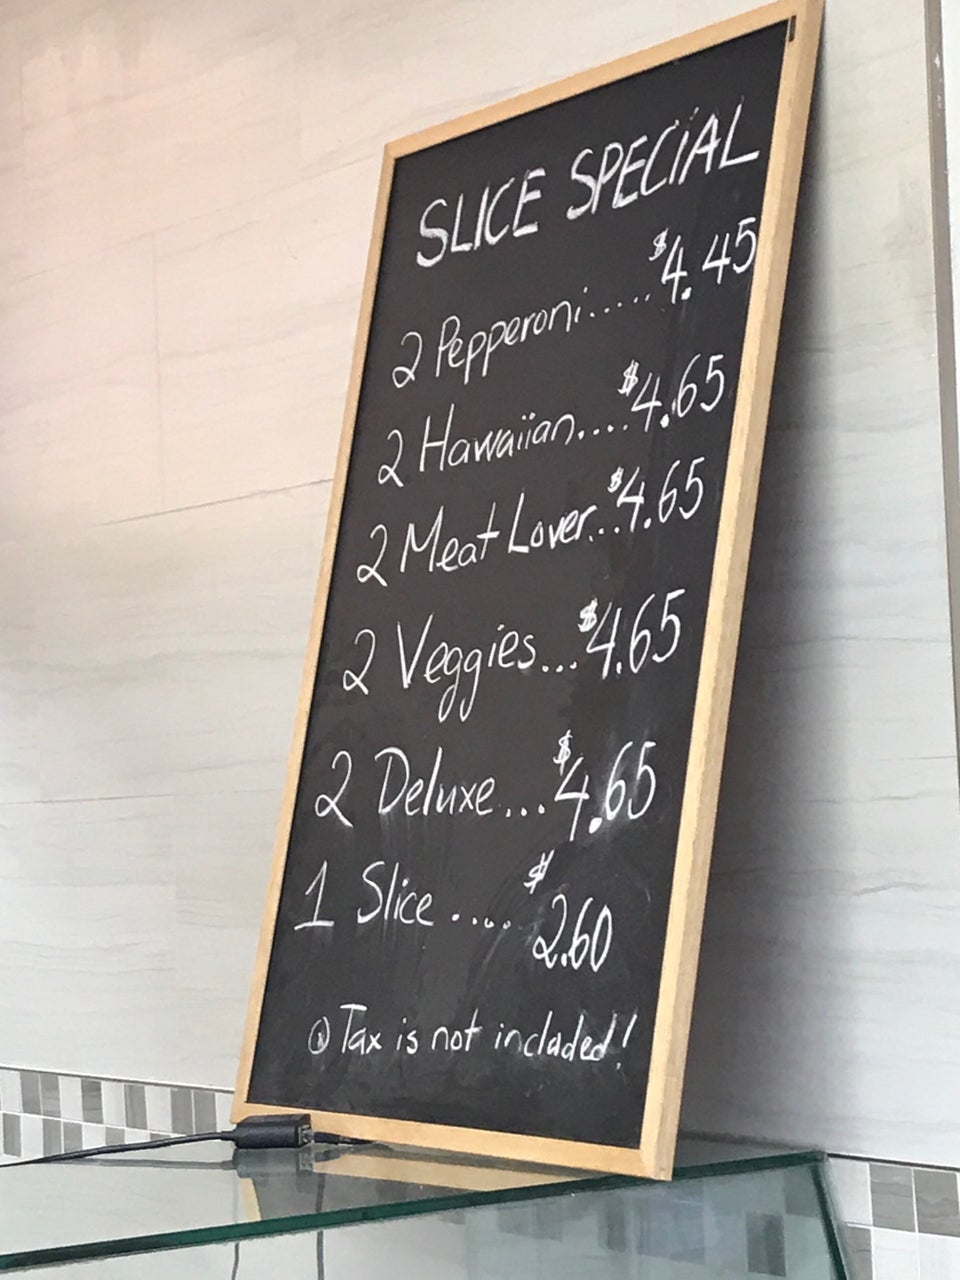 SLICE SPECIAL
2 Pepperoni..... $4.45
2 Hawaiian.... $4.65
2 Meat Lover... $4.65
2 Veggies... $4.65
2 Deluxe... $4.65
1 Slice .... $2.60
Tax is not included!